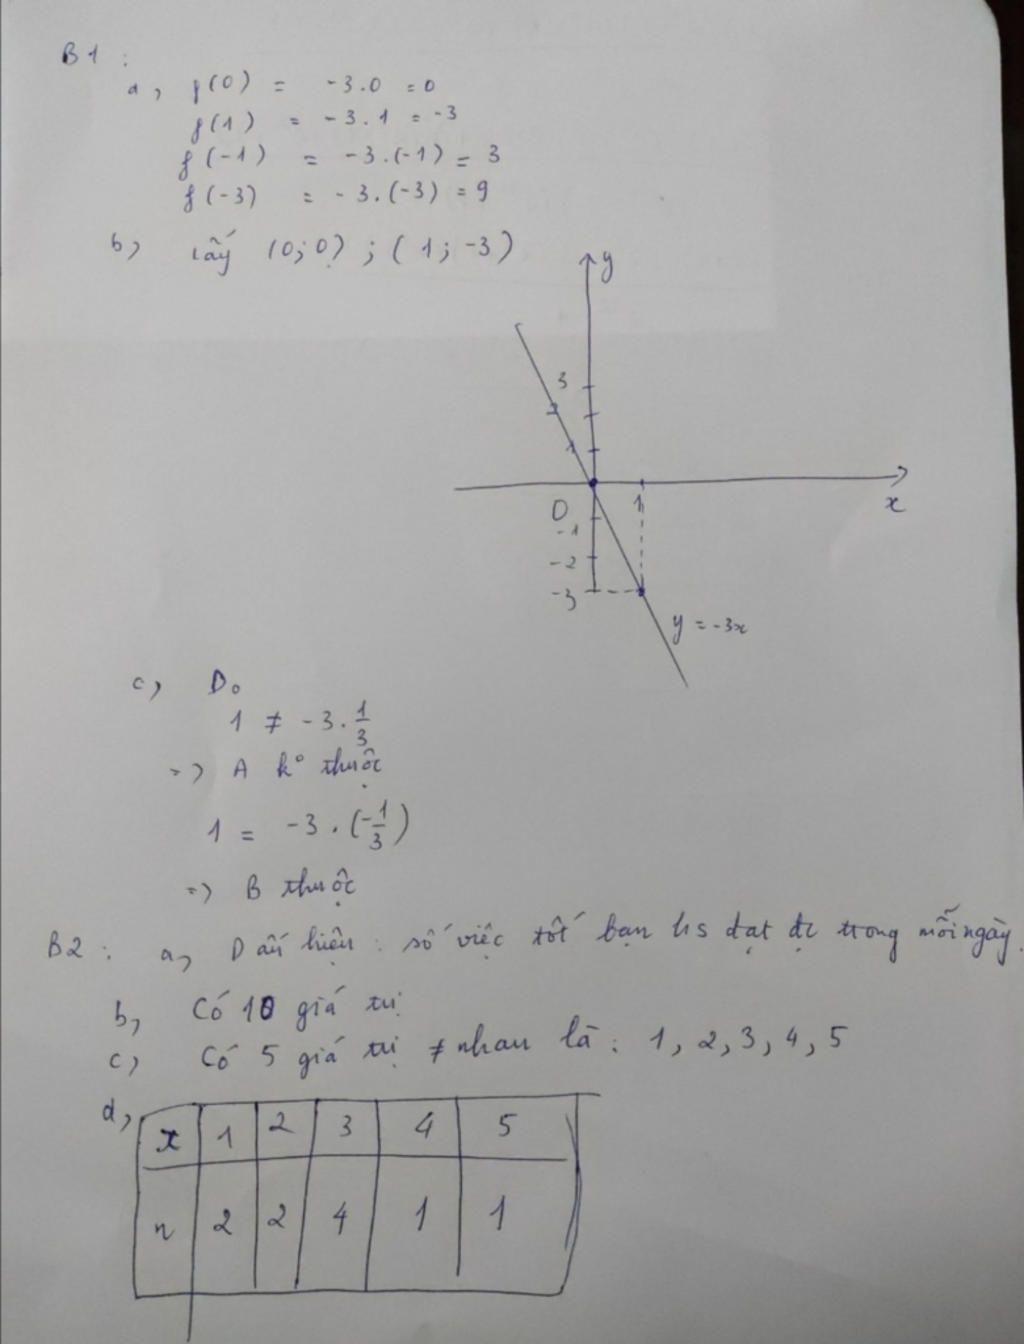 B1 :
a, f(0) = -3.0 = 0
f(1) = -3.1 = -3
f(-1) = -3.(-1) = 3
f(-3) = -3.(-3) = 9
b, Lấy (0;0) ; (1; -3)
y
3
2
1
0 1 x
-1
-2
-3
y = -3x
c, Do
1 ≠ -3 . 1/3
=> A ko thuộc
1 = -3 . (-1/3)
=> B thuộc
B2 : a, Dấu hiệu : số việc tốt bạn hs đạt đc trong mỗi ngày.
b, Có 10 giá trị
c, Có 5 giá trị ≠ nhau là : 1, 2, 3, 4, 5
d,
x 1 2 3 4 5
n 2 2 4 1 1